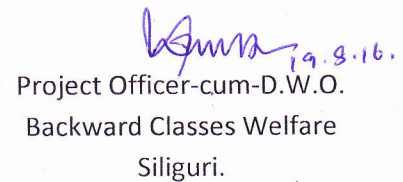 19.8.16.
Project Officer-cum-D.W.O.
Backward Classes Welfare
Siliguri.